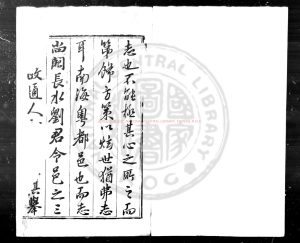 志也不能極其心之所之而
第飾方策以炫世猶弗志
耳南海粵都邑也而志
尚闕長水劉君令邑之三
政通人
其舉
CENTRAL LIBRARY